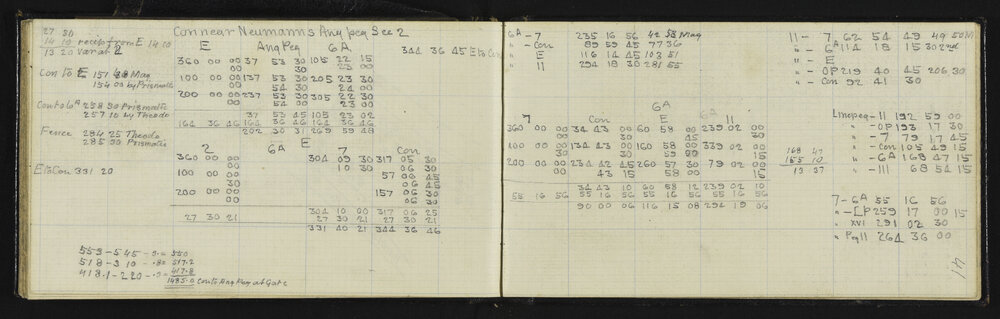 27 30
14 10 recip from E 14 00
13 20 Var at 2
Con to E 157 40 Mag
154 00 by Prismatic
Con to 6A 258 30 Prismatic
257 10 by Theodo
Fence 284 25 Theodo
285 00 Prismatic
E to Con 331 20
Con near Neumann's Ang peg Sec 2
E Ang Peg 6A 344 36 45 E to Con
360 00 00 37 53 30 105 22 15
00 53 30 23 00
100 00 00 137 53 30 205 23 30
00 54 30 24 00
200 00 00 237 53 30 305 22 30
00 54 00 23 00
37 53 45 105 23 02
164 36 46 164 36 46 164 36 46
202 30 31 269 59 48
2 6A E 7 Con
360 00 00 304 09 30 317 05 30
00 10 30 06 30
100 00 00 57 00 45
30 06 45
200 00 00 157 06 30
00 06 30
304 10 00 317 06 25
27 30 21 27 30 21 27 30 21
331 40 21 344 36 46
553 - 545 - .0 = 550
518 - 310 - .8 = 517.2
418.1 - 220 - .3 = 417.8
1485.0 Con to Ang Peg at Gate
6A - 7 235 16 56 42 53 Mag
" - Con 89 59 45 77 36
" E 116 14 45 103 51
" 11 294 18 30 281 55
6A
7 Con E 6A 11
360 00 00 34 43 00 60 58 00 239 02 00
30 30 45 30
100 00 00 134 43 00 160 58 00 339 02 00
30 30 59 00 15
200 00 00 234 42 45 260 57 30 79 02 00
00 43 15 58 00 15
34 43 10 60 58 12 239 02 10
55 16 56 55 16 56 55 16 56 55 16 56
90 00 06 116 15 08 294 19 06
168 47
155 10
13 37
11 - 7 62 54 49 49 50 M
" - 6A 114 18 15 30 2nd
" - E
" - OP 219 40 45 206 30
" - Con 92 41 30
Imp peg - 11 192 59 00
" - OP 193 17 30
" - 7 79 17 45
" - Con 105 49 15
" - 6A 168 47 15
" - III 68 54 15
7 - 6A 55 16 56
" - LP 259 17 00 15
" XVI 291 02 30
" Peg 11 264 36 00
41